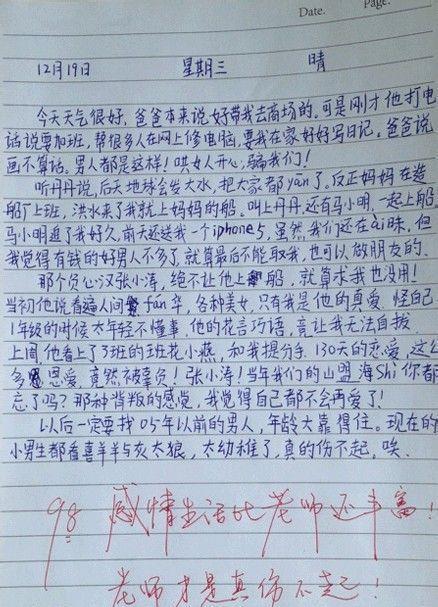 Date.
Page.
12月19日 星期三 晴
今天天气很好，爸爸本来说好带我去商场的。可是刚才他打电
话说要加班，帮很多人在网上修电脑，要我在家好好写日记。爸爸说
画不算话。男人都是这样！哄女人开心，骗我们！
听丹丹说，后天地球会发大水，把大家都yān了。反正妈妈在造
船厂上班，洪水来了我就上妈妈的船。叫上丹丹，还有马小明，一起上船。
马小明追了我好久，前天还送我一个iphone5，虽然我们还在ài昧，但
我觉得有钱的好男人不多了，就算最后不能娶我，也可以做朋友的。
那个负心汉张小涛，绝不让他上船，就算求我也没用！
当初他说看遍人间fán华，各种美女，只有我是他的真爱。怪自己
1年级的时候太年轻不懂事，他的花言巧语，竟让我无法自拔
上周，他看上了3班的班花小燕，和我提分手，130天的恋爱，这么
多恩爱，竟然被辜负！张小涛！当年我们的山盟海Shì你都
忘了吗？那种背叛的感觉，我觉得自己都不会再爱了！
以后一定要找05年以前的男人，年龄大靠得住。现在的
小男生都看喜羊羊与灰太狼，太幼稚了，真的伤不起，唉。
98 感情生活比老师还丰富！
老师才是真伤不起！